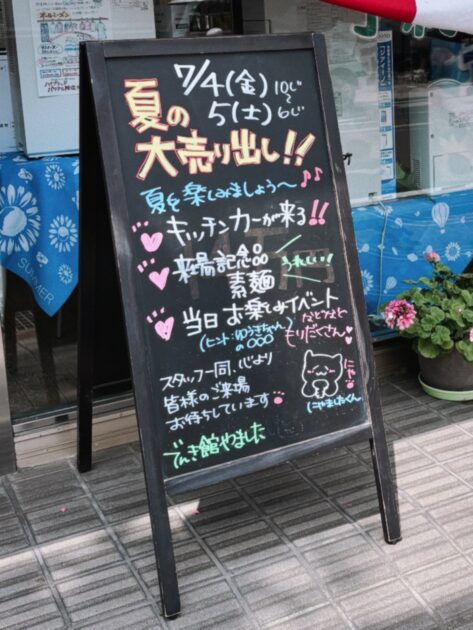 7/4(金) 10じ
5(土) 〜6じ
夏の
大売り出し!!
夏を楽しみましょう〜♪♪
キッチンカーが来る!!
来場記念品
素麺
うれしい!
当日お楽しみイベント
(ヒント:ゆうきちゃんの○○○)
などなど
もりだくさん
スタッフ同、心より
皆様のご来場
お待ちしています
にゃー
にやましたくん
でんき館やました
SUMMER